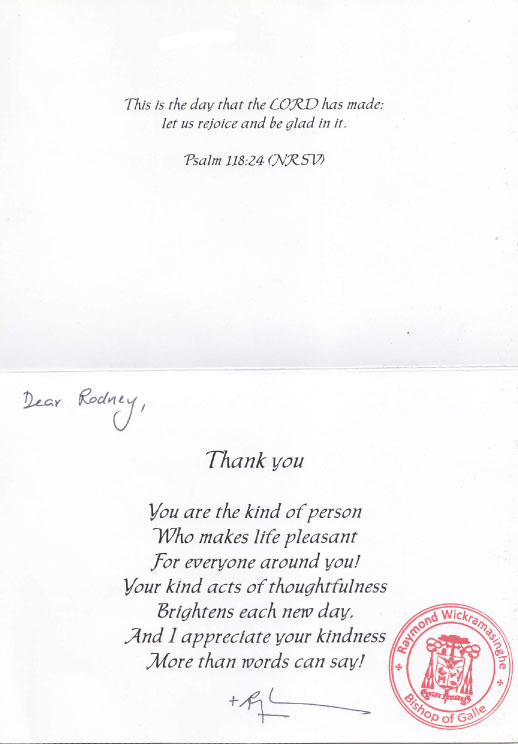 This is the day that the LORD has made;
let us rejoice and be glad in it.
Psalm 118:24 (NRSV)
Dear Rodney,
Thank you
You are the kind of person
Who makes life pleasant
For everyone around you!
Your kind acts of thoughtfulness
Brightens each new day,
And I appreciate your kindness
More than words can say!
Raymond Wickramasinghe
Bishop of Galle